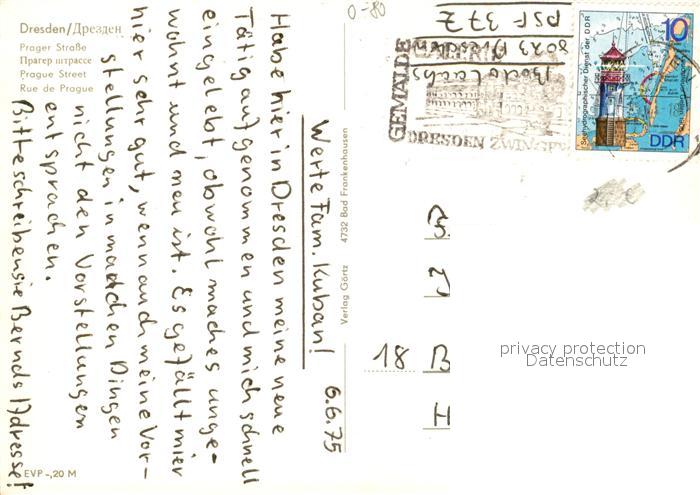 Dresden/Дрезден
Prager Straße
Прагер штрассе
Prague Street
Rue de Prague
6.6.75
Werte Fam. Kuban!
Habe hier in Dresden meine neue
Tätig aufgenommen und mich schnell
eingelebt, obwohl maches unge-
wohnt und neu ist. Es gefällt mir
hier sehr gut, wenn auch meine Vor-
stellungen in machen Dingen
nicht den Vorstellungen
entsprachen.
Bitte schreiben sie Bernds Adresse!
EVP -,20 M
Verlag Görtz 4732 Bad Frankenhausen
0-80
Bodo Lachs
8023 Dresden
PSF 377
GEMÄLDE
GALERIE
DRESDEN ZWINGER
10
Seehydrographischer Dienst der DDR
DDR
18 B
H
privacy protection
Datenschutz